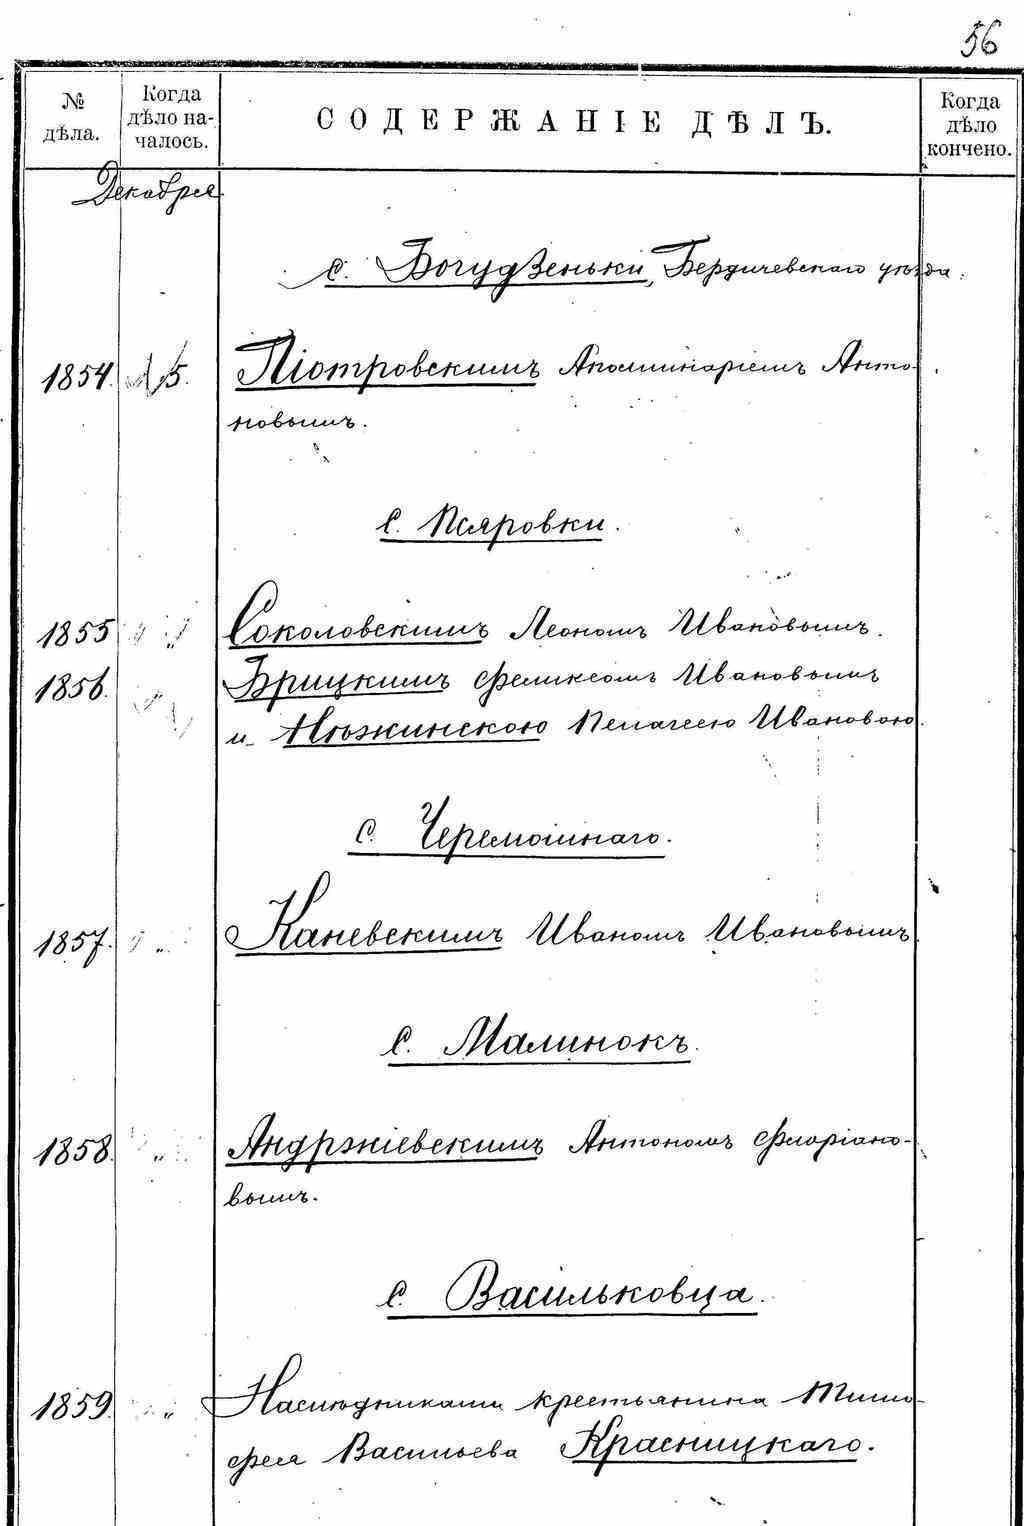 56
№ дѣла.
Когда дѣло началось.
СОДЕРЖАНІЕ ДѢЛЪ.
Когда дѣло кончено.
Декабря
с. Богудзеньки, Бердичевскаго уѣзда.
1854. 15. Піотровскимъ Аполинаріемъ Анто-
новымъ.
с. Псяровки.
1855 " Соколовскимъ Леономъ Ивановымъ.
1856. Брицкимъ Феликсомъ Ивановымъ
и Мюжинскою Пелагеею Ивановою.
с. Черемошнаго.
1857. " Каневскимъ Иваномъ Ивановымъ
с. Малинокъ.
1858. " Андржіевскимъ Антономъ Флоріано-
вымъ.
с. Васильковца.
1859. " Наслѣдниками крестьянина Тимо-
фея Васильева Красницкаго.